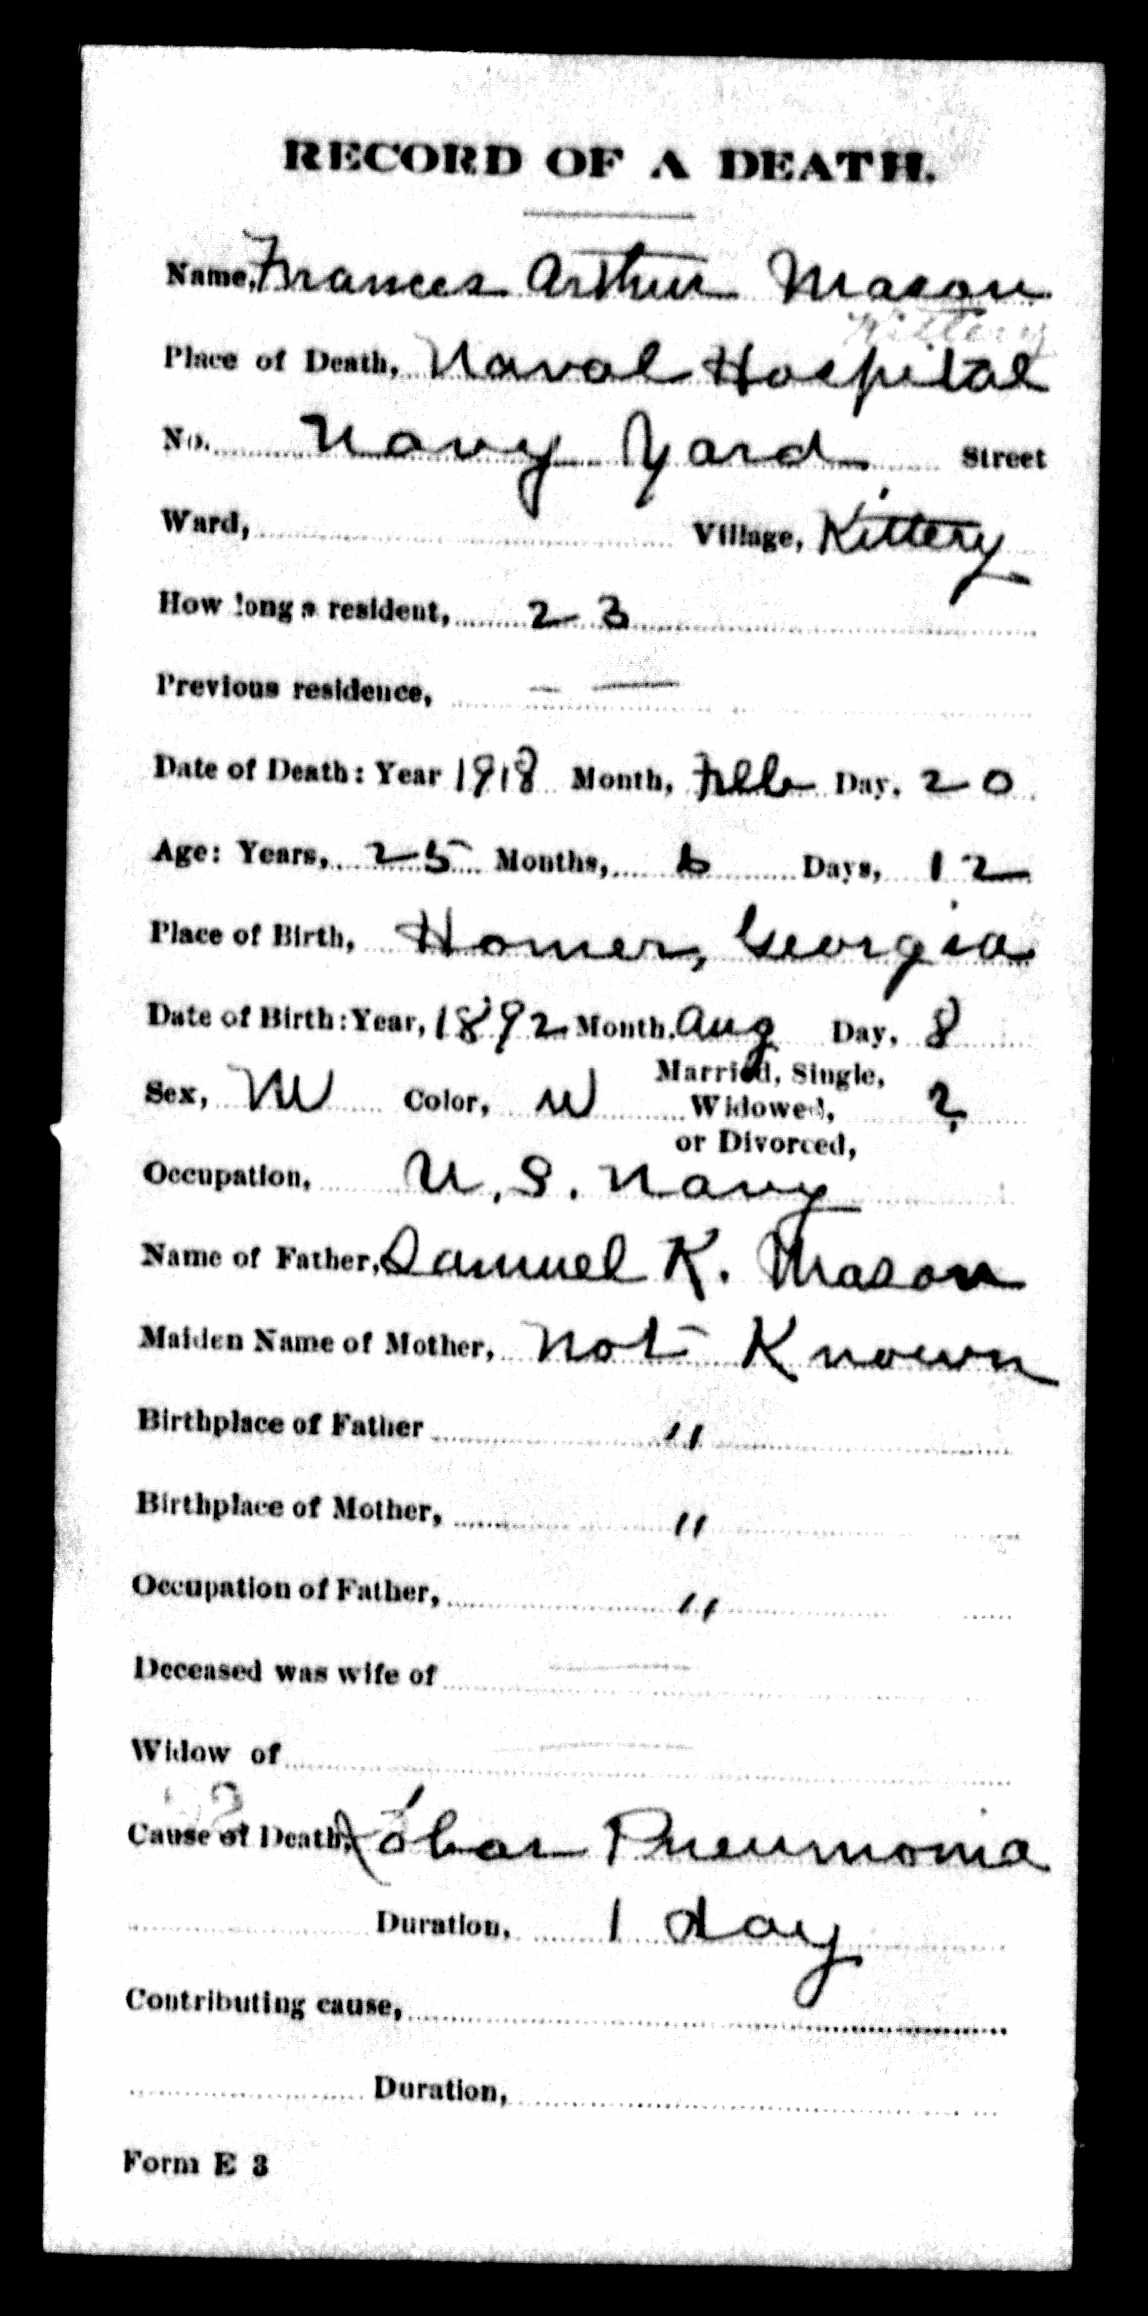 RECORD OF A DEATH.
Name, Frances Arthur Mason
Kittery
Place of Death, Naval Hospital
No. Navy Yard Street
Ward, Village, Kittery
How long a resident, 23
Previous residence, — —
Date of Death: Year 1918 Month, Feb Day, 20
Age: Years, 25 Months, 6 Days, 12
Place of Birth, Homer, Georgia
Date of Birth: Year, 1892 Month, Aug Day, 8
Sex, M Color, W Married, Single,
Widowed, ?
or Divorced,
Occupation, U.S. Navy
Name of Father, Samuel K. Mason
Maiden Name of Mother, Not Known
Birthplace of Father "
Birthplace of Mother, "
Occupation of Father, "
Deceased was wife of —
Widow of —
Cause of Death, Lobar Pneumonia
Duration, 1 day
Contributing cause,
Duration,
Form E 3